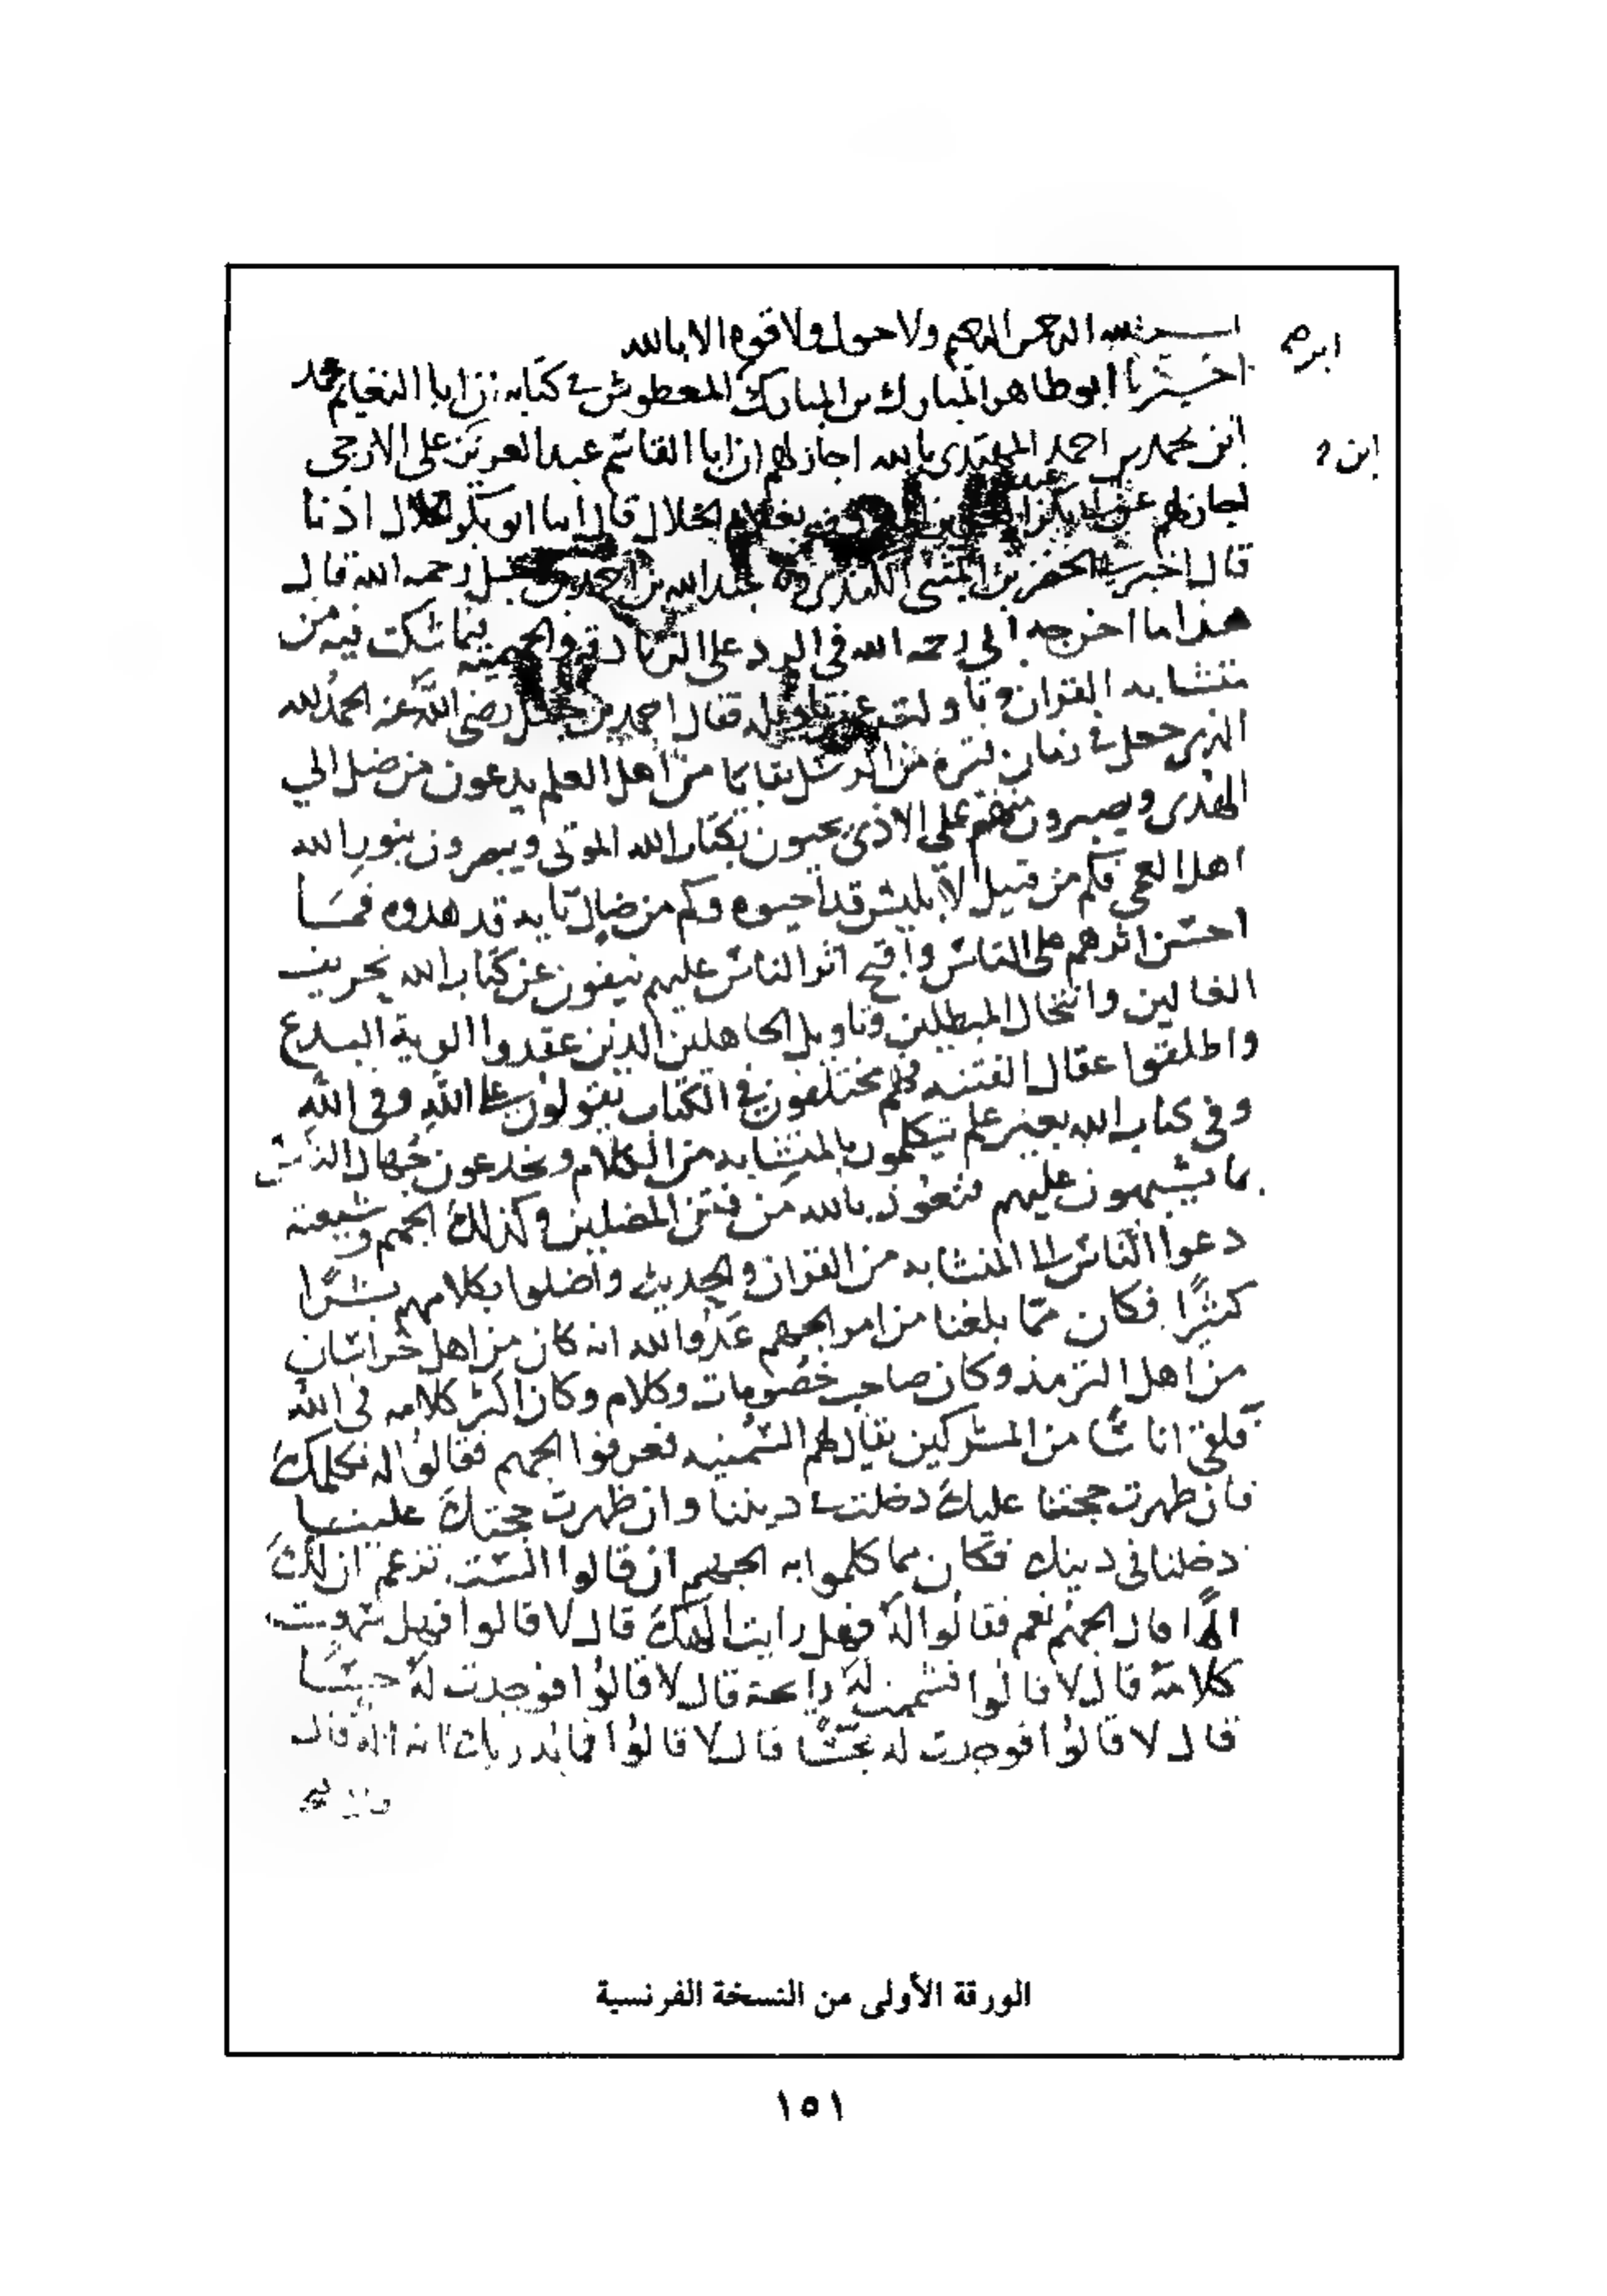 بسم الله الرحمن الرحيم ولا حول ولا قوة الا بالله
ابرهم
اخبرنا ابو طاهر المبارك بن المبارك المعطوش في كتابه ان ابا الغنايم محمد
ابن محمد بن احمد المهتدي بالله اجاز لهم ان ابا القاسم عبد العزيز على الازجى
ابن
اجاز لهم عن الخلال قال ابنا ابو بكر الخلال اذنا
قال اخبرنى الخضر بن المثنى الكندي عبد الله بن احمد بن حنبل رحمه الله قال
هذا ما اخرجه ابي رحمه الله في الرد على الزنادقة والجهمية فيما شكت فيه من
متشابه القران وتاولته غير تاويله فقال احمد بن حنبل رضى الله عنه الحمد لله
الذي جعل في زمان فترة من الرسل بقايا من اهل العلم يدعون من ضل الي
الهدى ويصبرون منهم على الاذى يحيون بكتاب الله الموتى ويبصرون بنور الله
اهل العمي فكم من قتيل لابليس قد احيوه وكم من ضال تايه قد هدوه فما
احسن اثرهم على الناس واقبح اثر الناس عليهم ينفون عن كتاب الله تحريف
الغالين وانتحال المبطلين وتاويل الجاهلين الذين عقدوا الوية البدع
واطلقوا عقال الفتنه فهم مختلفون في الكتاب يقولون على الله وفي الله
وفي كتاب الله بغير علم يتكلمون بالمتشابه من الكلام ويخدعون جهال الناس
بما يشبهون عليهم فنعوذ بالله من فتن المضلين وكذلك الجهم وشيعته
دعوا الناس الى المتشابه من القران والحديث واضلوا بكلامهم بشرًا
كثيرًا فكان مما بلغنا من امر الجهم عدو الله انه كان من اهل خراسان
من اهل الترمذ وكان صاحب خصومات وكلام وكان اكثر كلامه في الله
فلقي اناسًا من المشركين يقال لهم السمنيه فعرفوا الجهم فقالوا له نكلمك
فان ظهرت حجتنا عليك دخلت في ديننا وان ظهرت حجتك علينا
دخلنا في دينك فكان مما كلموا به الجهم ان قالوا الست تزعم ان لك
الهًا قال الجهم نعم فقالوا له فهل رايت الهك قال لا قالوا فهل سمعت
كلامه قال لا قالوا فشممت له رايحة قال لا قالوا فوجدت له حسًا
قال لا قالوا فوجدت له مجسًا قال لا قالوا فما يدريك انه اله قال
الورقة الأولى من النسخة الفرنسية
١٥١